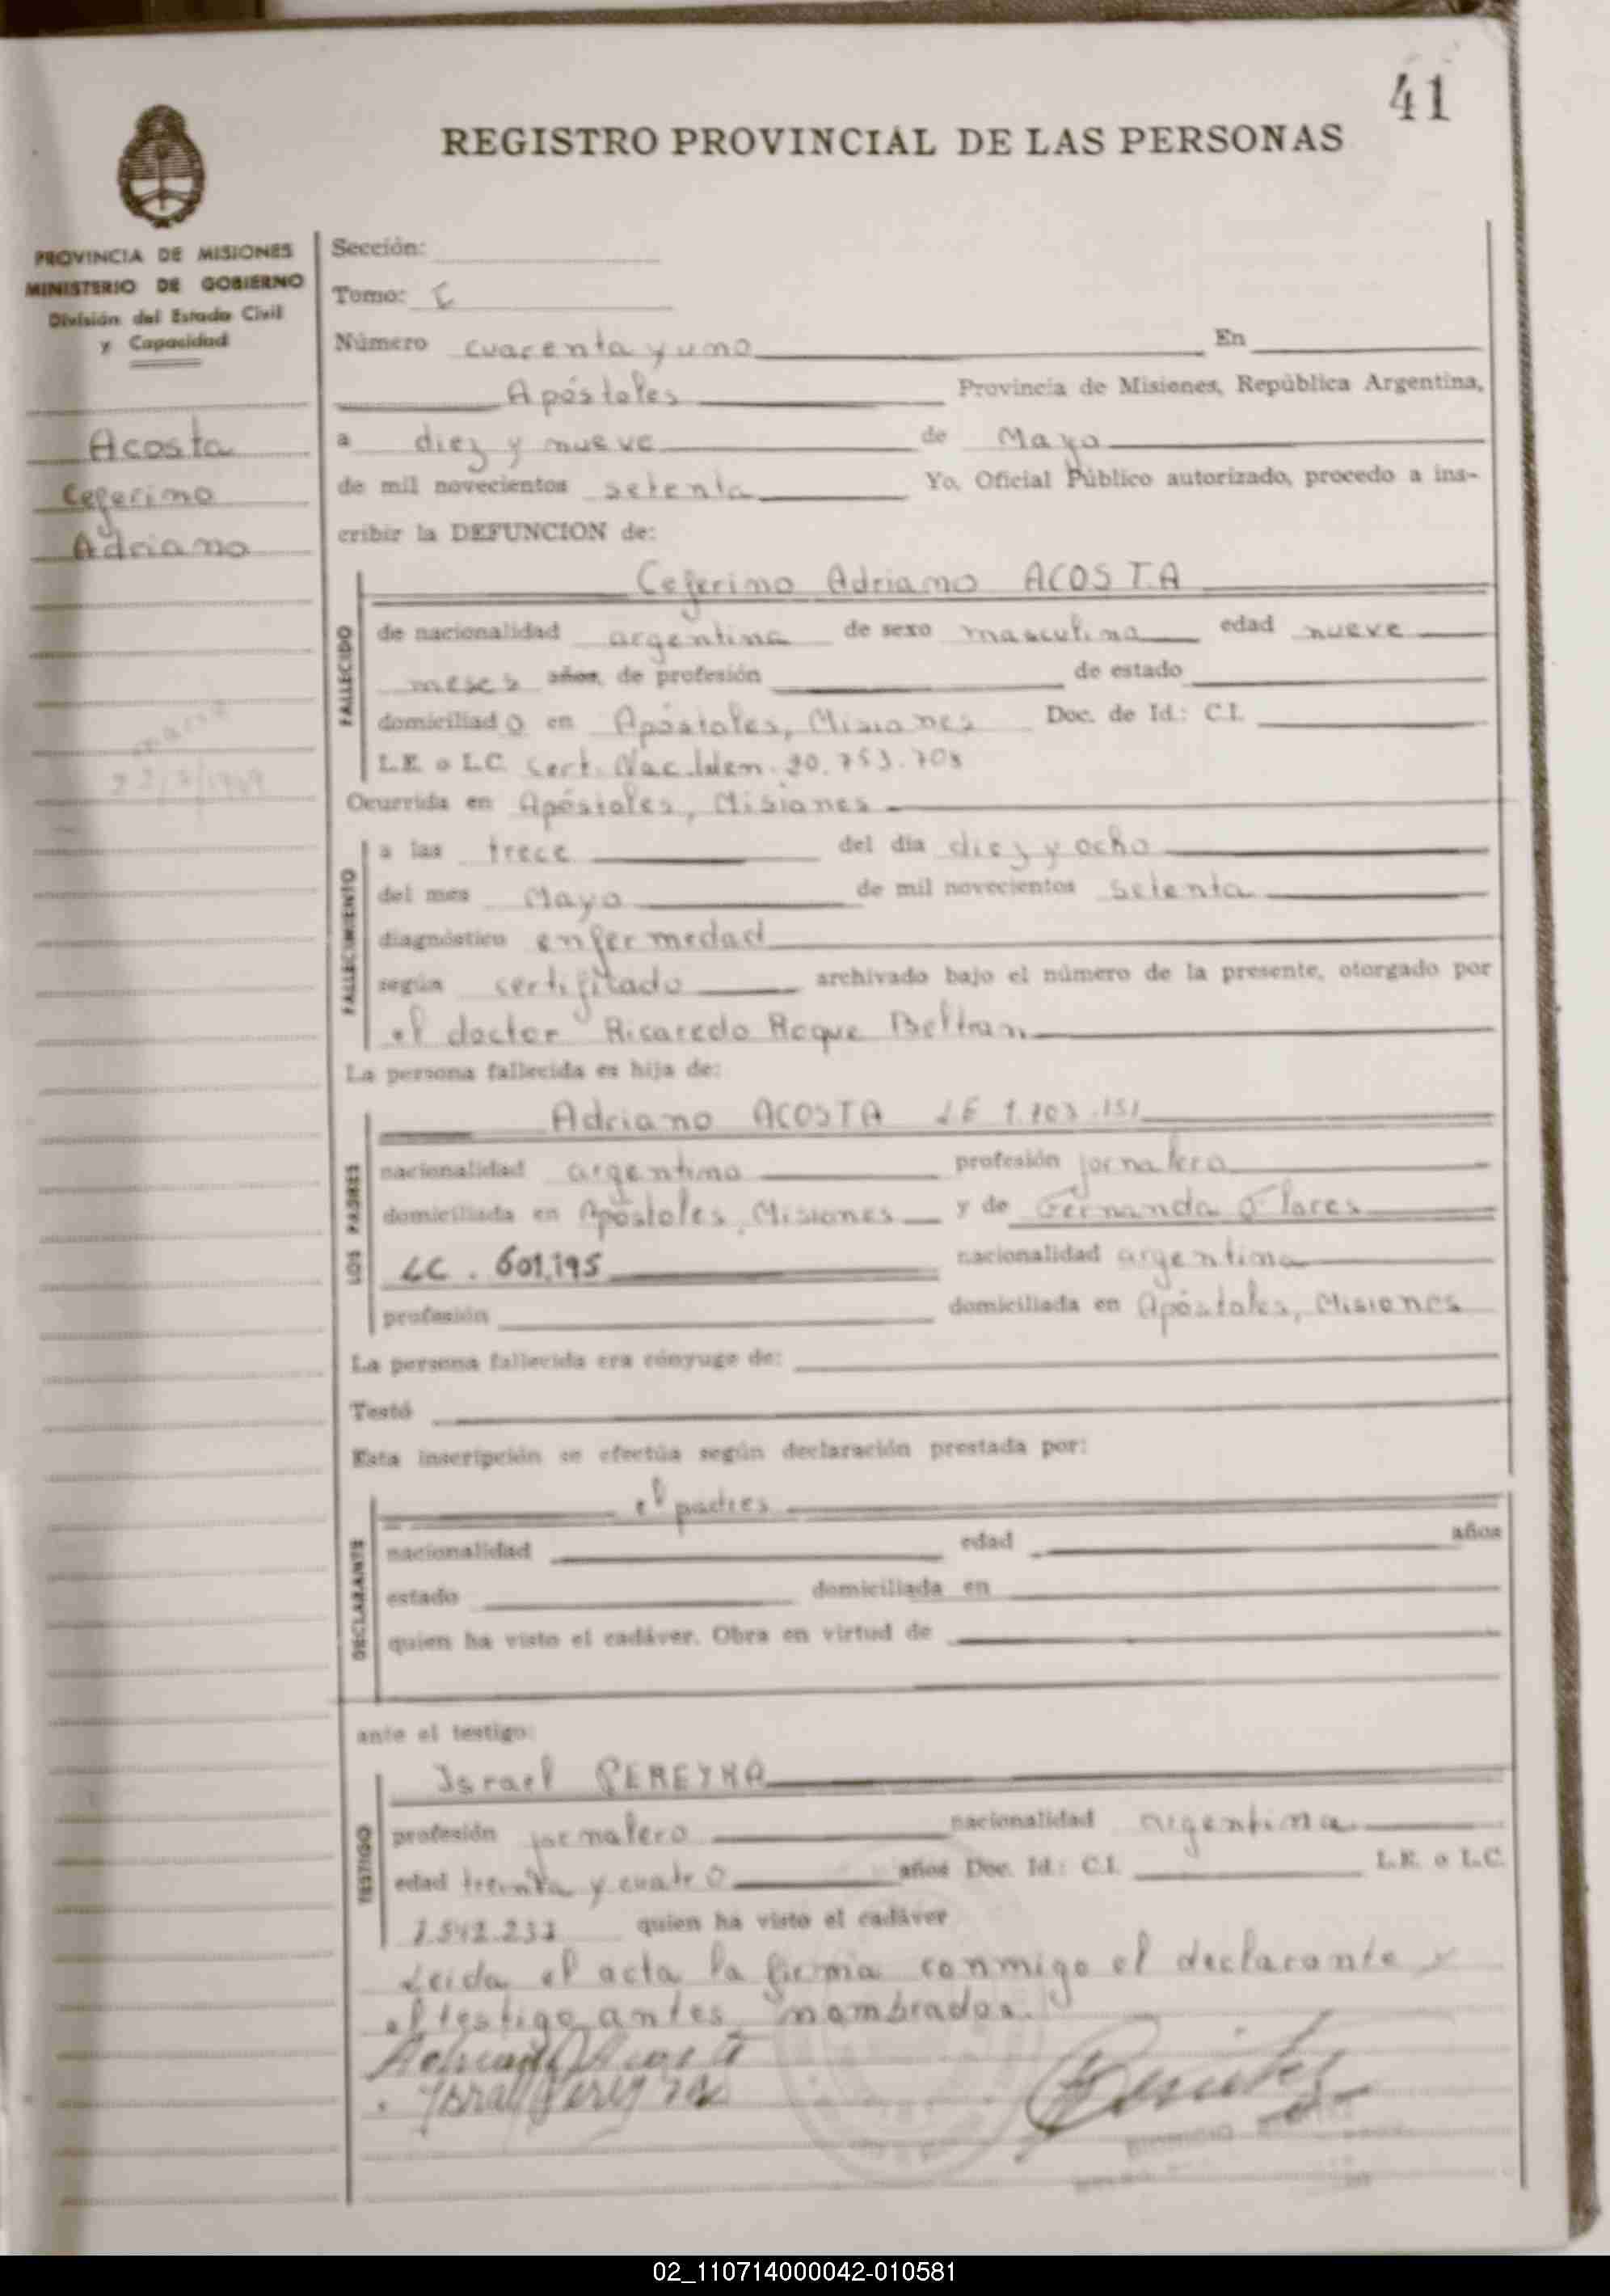 41
REGISTRO PROVINCIAL DE LAS PERSONAS
PROVINCIA DE MISIONES
MINISTERIO DE GOBIERNO
División del Estado Civil
y Capacidad
Acosta
Ceferino
Adriano
Sección:
Tomo: I
Número cuarenta y uno En
Apóstoles Provincia de Misiones, República Argentina,
a diez y nueve de Mayo
de mil novecientos setenta Yo, Oficial Público autorizado, procedo a ins-
cribir la DEFUNCION de:
FALLECIDO
Ceferino Adriano ACOSTA
de nacionalidad argentina de sexo masculino edad nueve
meses años, de profesión de estado
domiciliado en Apóstoles, Misiones Doc. de Id.: C.I.
L.E. o L.C. Cert. Nac. Iden. 20.753.708
Ocurrida en Apóstoles, Misiones
FALLECIMIENTO
a las trece del día diez y ocho
del mes Mayo de mil novecientos setenta
diagnóstico enfermedad
según certificado archivado bajo el número de la presente, otorgado por
el doctor Ricaredo Roque Beltran
La persona fallecida es hija de:
LOS PADRES
Adriano ACOSTA LE 7.703.151
nacionalidad argentino profesión jornalero
domiciliada en Apóstoles, Misiones y de Fernanda Flores
LC. 601,195 nacionalidad argentina
profesión domiciliada en Apóstoles, Misiones
La persona fallecida era cónyuge de:
Testó
Esta inscripción se efectúa según declaración prestada por:
DECLARANTE
el padres
nacionalidad edad años
estado domiciliada en
quien ha visto el cadáver. Obra en virtud de
ante el testigo:
TESTIGO
Israel PEREYRA
profesión jornalero nacionalidad argentina
edad treinta y cuatro años Doc. Id.: C.I. L.E. o L.C.
7.542.237 quien ha visto el cadáver
Leida el acta la firma conmigo el declarante y
el testigo antes nombrados.
Adriano Acosta
Israel Pereyra
02_110714000042-010581